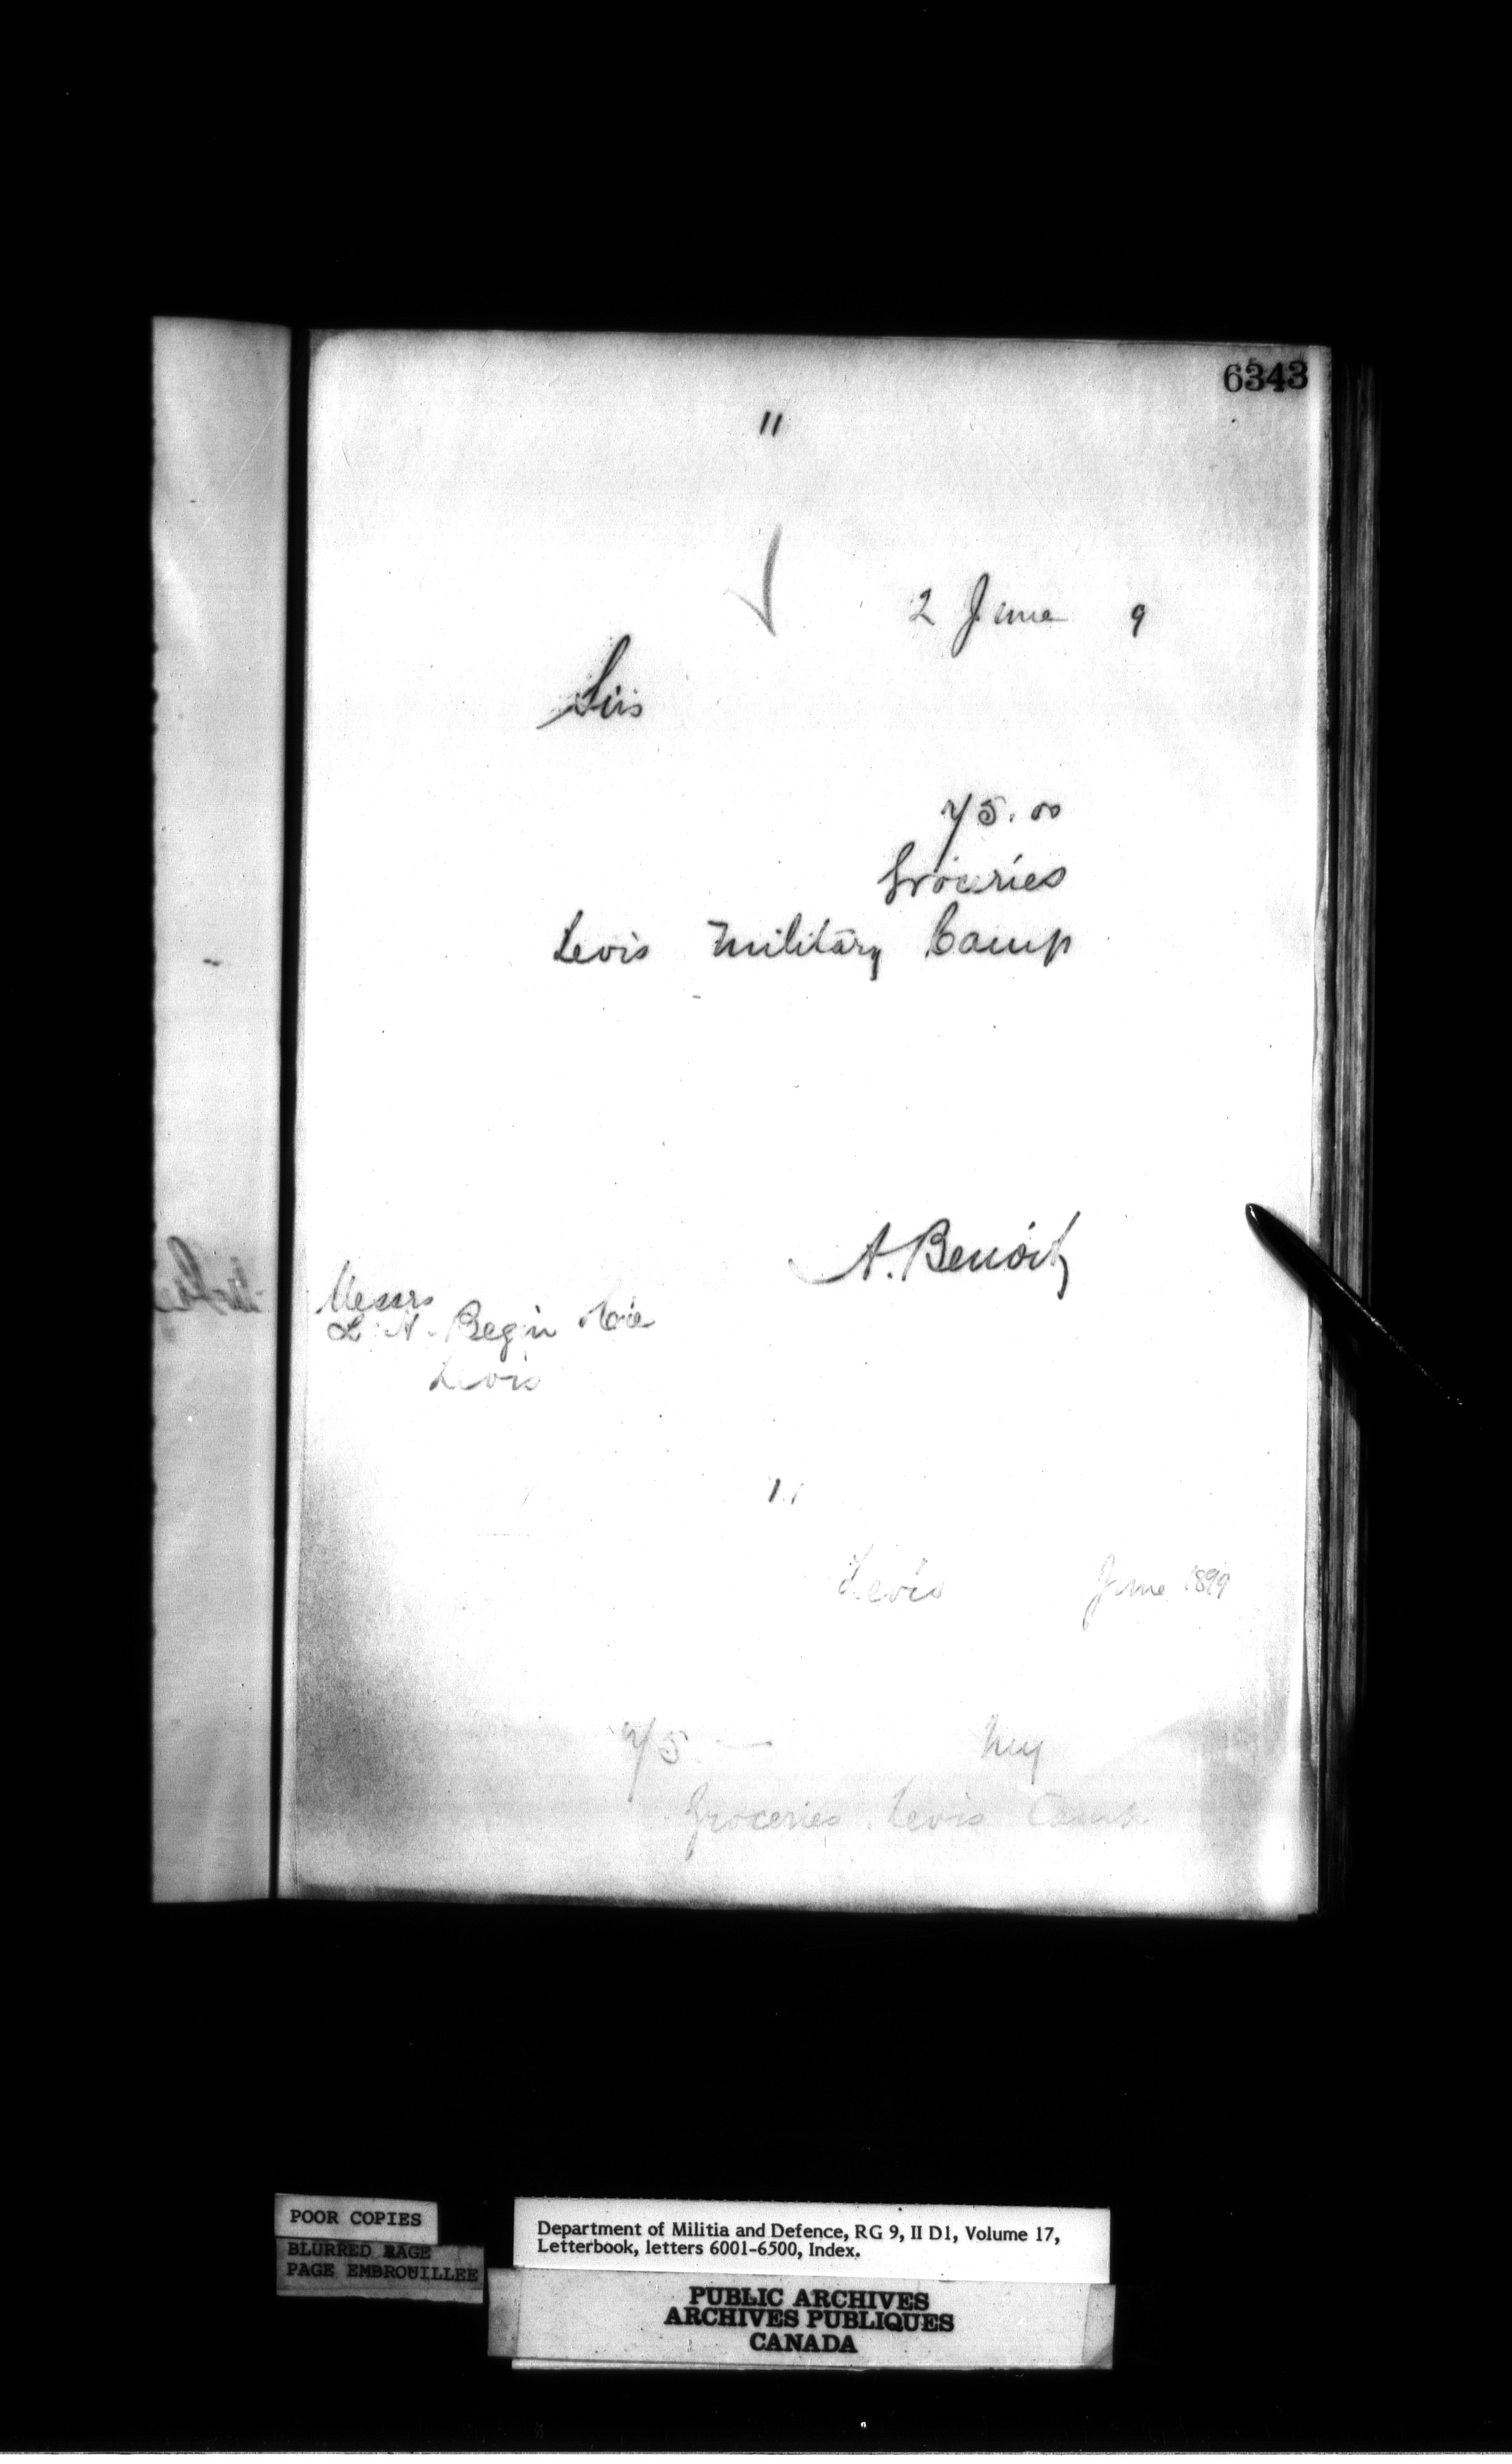 6343
"
2 June 9
Sirs
75.00
Groceries
Levis Military Camp
A. Benoit
Messrs
L. N. Begin Cie
Levis
Levis June 1899
75.—
Groceries Levis Camp
POOR COPIES
BLURRED PAGE
PAGE EMBROUILLEE
Department of Militia and Defence, RG 9, II D1, Volume 17,
Letterbook, letters 6001-6500, Index.
PUBLIC ARCHIVES
ARCHIVES PUBLIQUES
CANADA